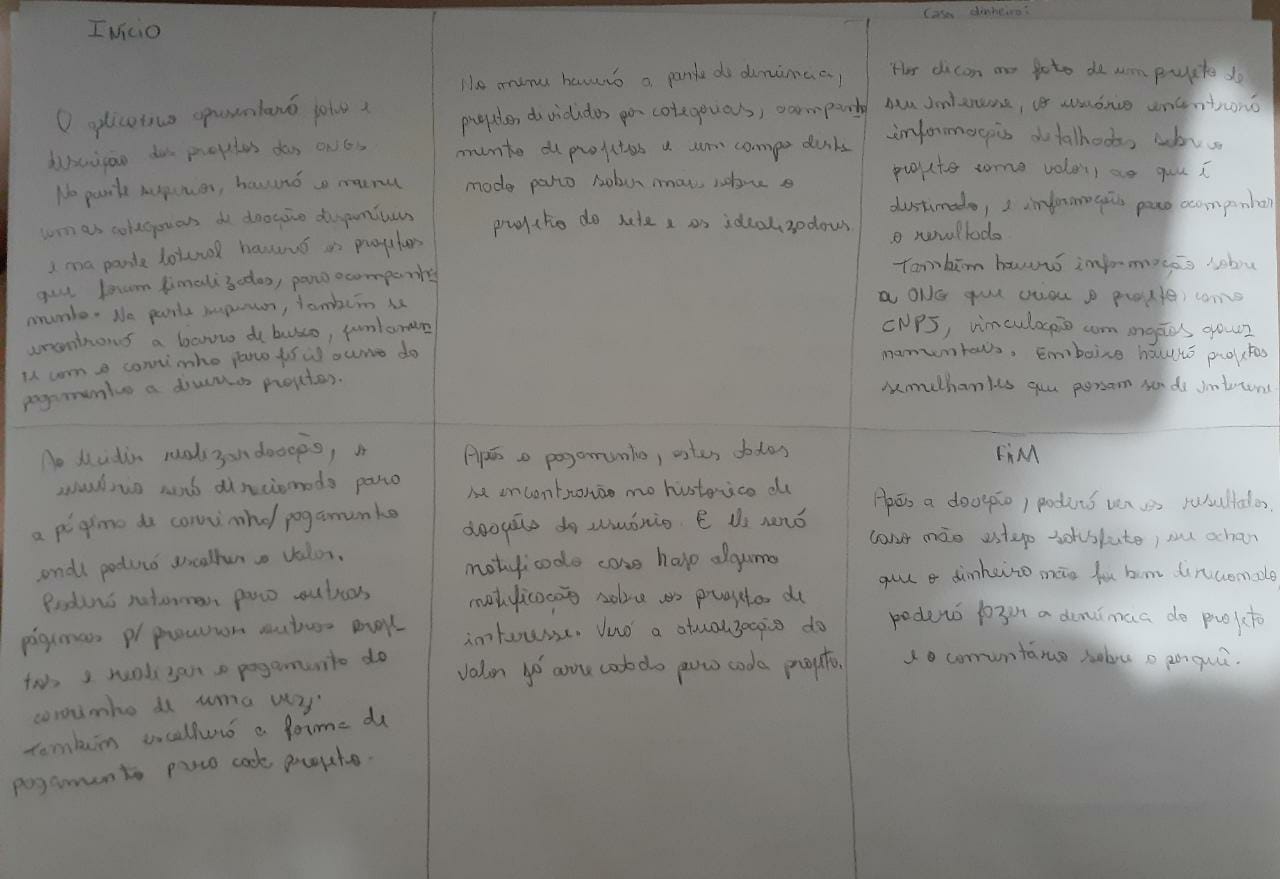 Caso dinheiro:
INICIO
O aplicativo apresentará foto e
descrição dos projetos das ONGs
Na parte superior, haverá o menu
com as categorias de doação disponíveis
e na parte lateral haverá os projetos
que foram finalizados, para acompanha
mento. Na parte superior, também se
encontrará a barra de busca, juntamen
te com o carrinho para fácil acesso do
pagamento a diversos projetos.
No menu haverá a parte de denúncia,
projetos divididos por categorias, acompanha
mento de projetos e um campo deste
modo para saber mais sobre o
projeto do site e os idealizadores.
Ao clicar na foto de um projeto de
seu interesse, o usuário encontrará
informações detalhadas sobre o
projeto como valor, ao que é
destinado, e informações para acompanhar
o resultado.
Também haverá informação sobre
a ONG que criou o projeto, como
CNPJ, vinculação com orgãos gover
namentais. Embaixo haverá projetos
semelhantes que possam ser de interesse
Ao decidir realizar doação, o
usuário será direcionado para
a página de carrinho/pagamento
onde poderá escolher o valor.
Poderá retornar para outras
páginas p/ procurar outros proje-
tos e realizar o pagamento do
carrinho de uma vez.
Também escolherá a forma de
pagamento para cada projeto.
Após o pagamento, estes dados
se encontrarão no historico de
doações do usuário. E ele será
notificado caso haja alguma
notificação sobre os projetos de
interesse. Verá a atualização do
valor já arrecadado para cada projeto.
FIM
Após a doação, poderá ver os resultados.
caso não esteja satisfeito, ou achar
que o dinheiro não foi bem direcionado,
poderá fazer a denúncia do projeto
e o comentário sobre o porquê.